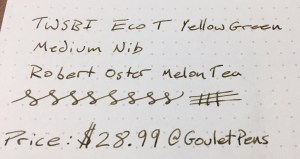 TWSBI Eco T YellowGreen
Medium Nib
Robert Oster Melon Tea
Price: $28.99 @GouletPens